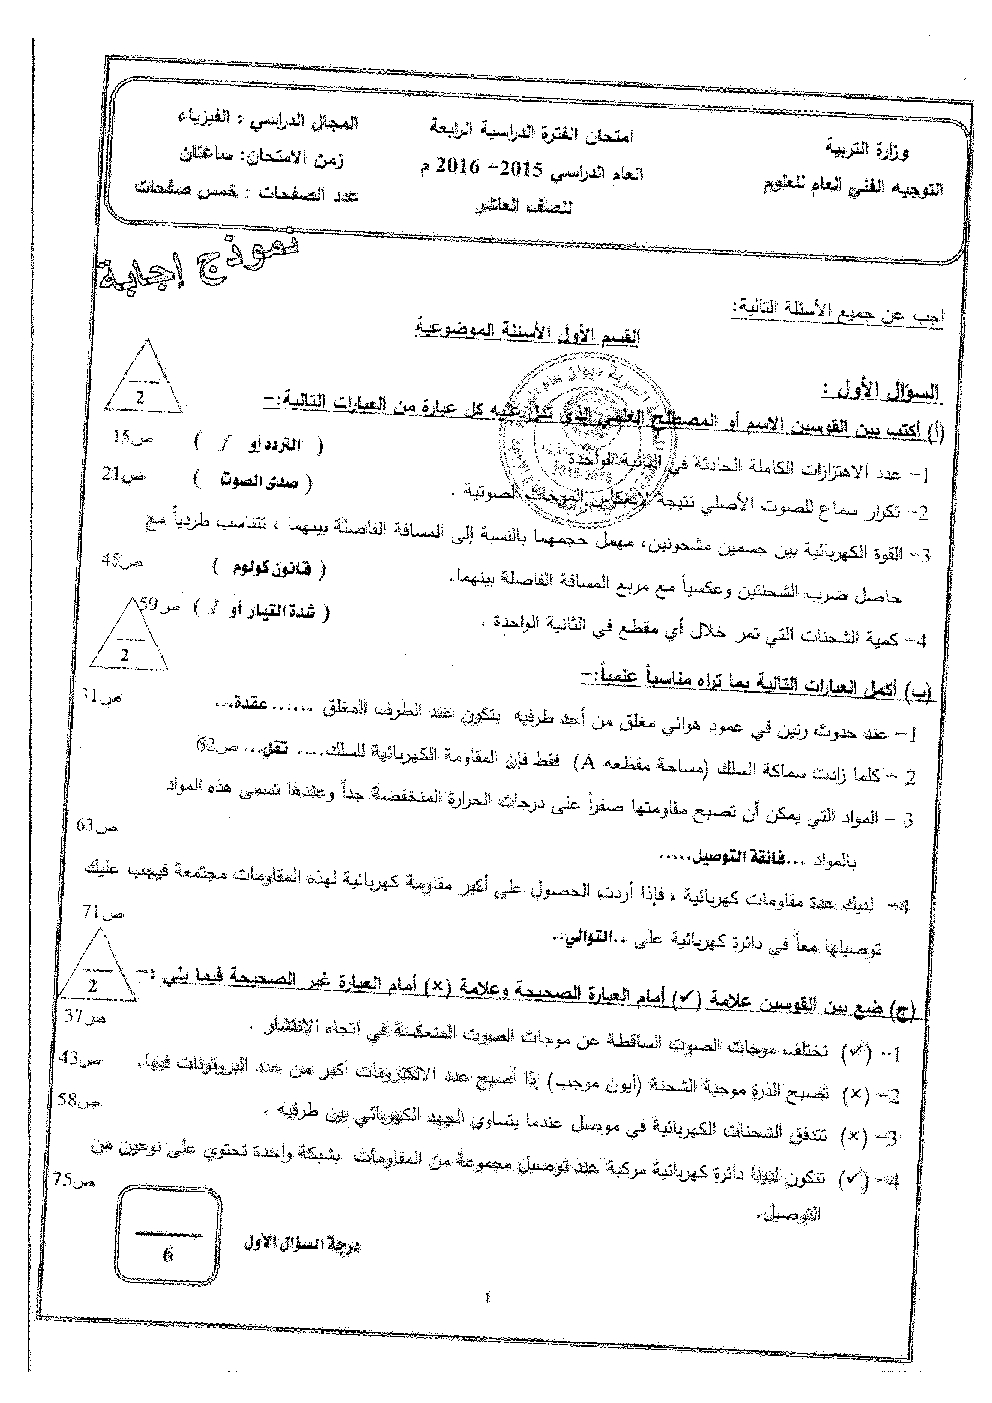 وزارة التربية
التوجيه الفني العام للعلوم
امتحان الفترة الدراسية الرابعة
العام الدراسي 2015– 2016 م
للصف العاشر
المجال الدراسي : الفيزياء
زمن الامتحان: ساعتان
عدد الصفحات : خمس صفحات
نموذج إجابة
اجب عن جميع الأسئلة التالية:
القسم الأول الأسئلة الموضوعية
السؤال الأول :
2
(أ) أكتب بين القوسين الاسم أو المصطلح العلمي الذي تدل عليه كل عبارة من العبارات التالية:–
1– عدد الاهتزازات الكاملة الحادثة في الثانية الواحدة ( التردد أو f ) ص15
2– تكرار سماع للصوت الأصلي نتيجة لانعكاس الموجات الصوتية . ( صدى الصوت ) ص21
3– القوة الكهربائية بين جسمين مشحونين، مهمل حجمهما بالنسبة إلى المسافة الفاصلة بينهما ، تتناسب طردياً مع
حاصل ضرب الشحنتين وعكسياً مع مربع المسافة الفاصلة بينهما. ( قانون كولوم ) ص45
4– كمية الشحنات التي تمر خلال أي مقطع في الثانية الواحدة . ( شدة التيار أو I ) ص59
2
(ب) أكمل العبارات التالية بما تراه مناسباً علمياً:–
1– عند حدوث رنين في عمود هوائي مغلق من أحد طرفيه يتكون عند الطرف المغلق ...... عقدة... ص31
2 – كلما زادت سماكة السلك (مساحة مقطعه A) فقط فإن المقاومة الكهربائية للسلك.... تقل... ص62
3 – المواد التي يمكن أن تصبح مقاومتها صفراً على درجات الحرارة المنخفضة جداً وعندها تسمى هذه المواد
بالمواد ...فائقة التوصيل..... ص63
4– لديك عدة مقاومات كهربائية ، فإذا أردت الحصول علي أكبر مقاومة كهربائية لهذه المقاومات مجتمعة فيجب عليك
توصيلها معاً في دائرة كهربائية على ..التوالي.. ص71
2
(ج) ضع بين القوسين علامة (✓) أمام العبارة الصحيحة وعلامة (×) أمام العبارة غير الصحيحة فيما يلي :–
1– (✓) تختلف موجات الصوت الساقطة عن موجات الصوت المنعكسة في اتجاه الانتشار . ص37
2– (×) تصبح الذرة موجبة الشحنة (أيون موجب) إذا أصبح عدد الالكترونات أكبر من عدد البروتونات فيها. ص43
3– (×) تتدفق الشحنات الكهربائية في موصل عندما يتساوى الجهد الكهربائي بين طرفيه . ص58
4– (✓) تتكون لدينا دائرة كهربائية مركبة عند توصيل مجموعة من المقاومات بشبكة واحدة تحتوي على نوعين من
التوصيل. ص75
درجة السؤال الأول
6
1